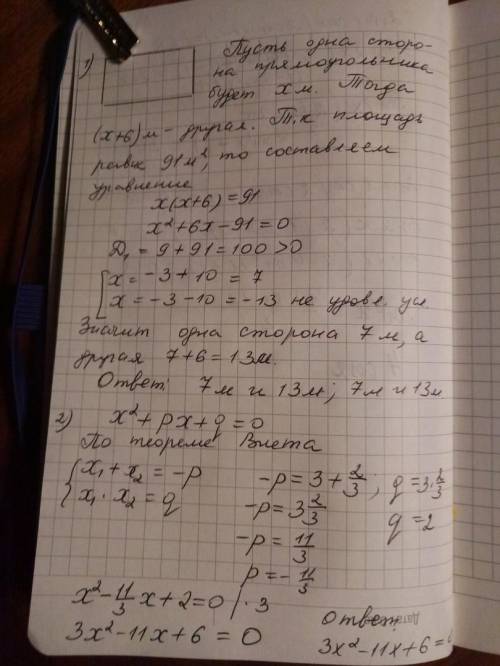 1) Пусть одна сторо-
на прямоугольника
будет x м. Тогда
(x+6)м - другая. Т.к площадь
равна 91м², то составляем
уравнение
x(x+6)=91
x²+6x-91=0
D₁ = 9+91=100>0
[x = -3+10 = 7
x = -3-10 = -13 не удовл. усл.
Значит одна сторона 7 м, а
другая 7+6=13м.
Ответ: 7м и 13м; 7м и 13м
2) x²+px+q=0
По теореме Виета
{x₁+x₂ = -p
x₁·x₂ = q
-p = 3+2/3; q = 3·2/3
-p = 3 2/3
q = 2
-p = 11/3
p = -11/3
x² - 11/3 x + 2 = 0 | · 3
3x²-11x+6 = 0
Ответ:
3x²-11x+6=